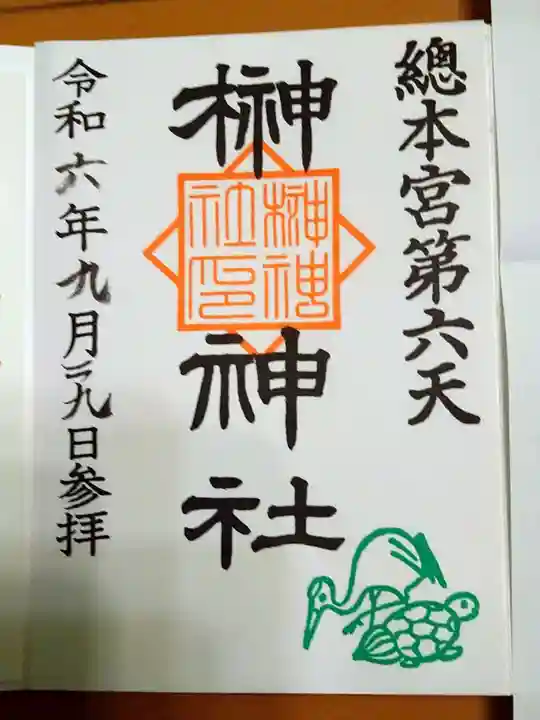 總本宮第六天
榊神社
榊神
社印
令和六年九月二九日参拝